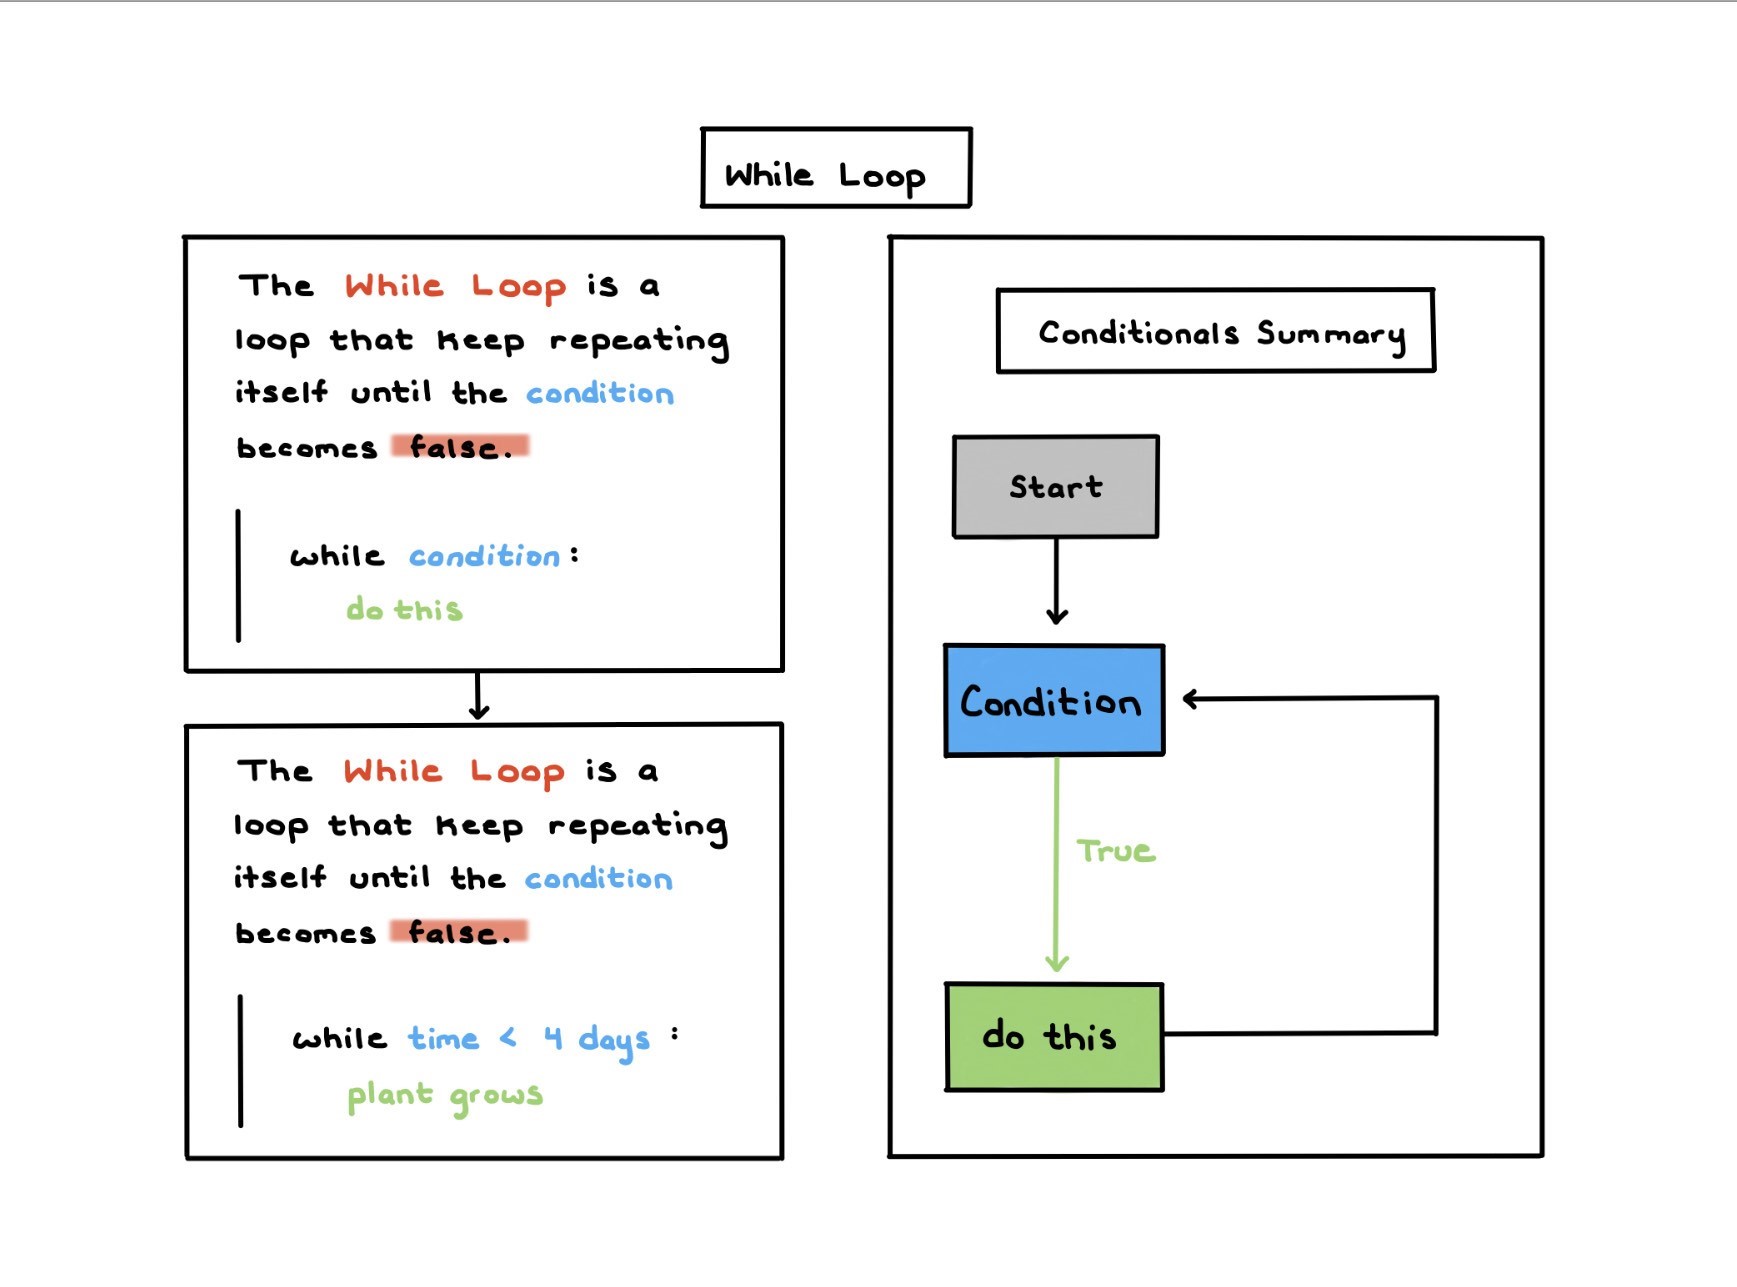 While Loop
The While Loop is a
loop that keep repeating
itself until the condition
becomes false.
while condition:
do this
The While Loop is a
loop that keep repeating
itself until the condition
becomes false.
while time < 4 days :
plant grows
Conditionals Summary
Start
Condition
True
do this